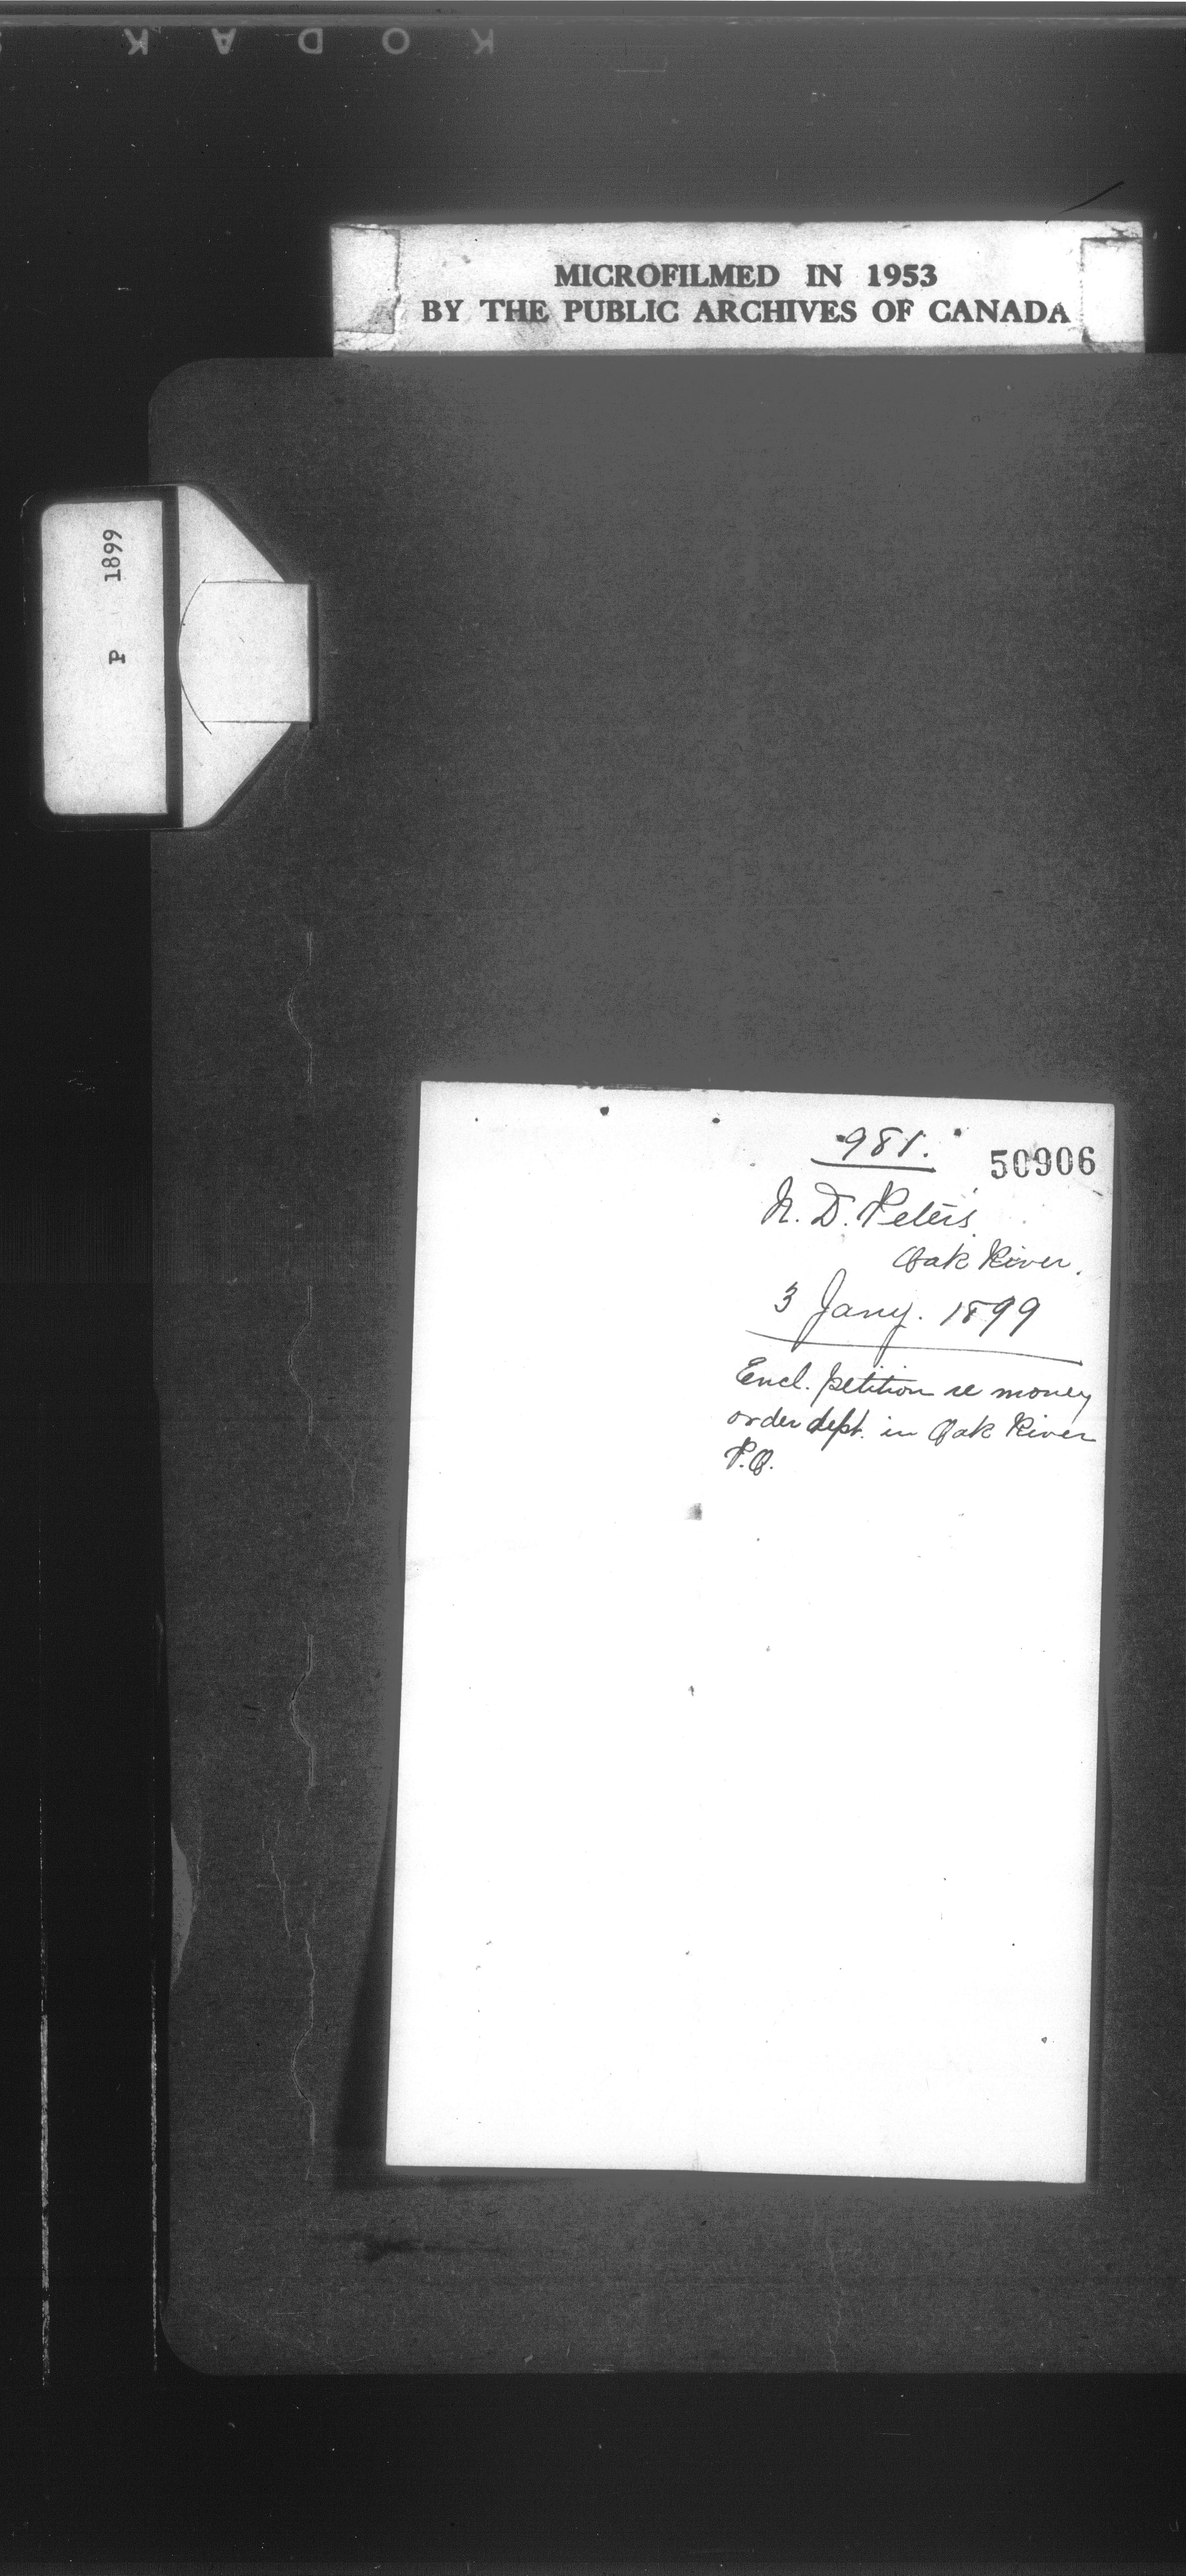 KODAK
MICROFILMED IN 1953
BY THE PUBLIC ARCHIVES OF CANADA
P 1899
981.
50906
N. D. Peters
Oak River.
3 Jany. 1899
Encl. petition re money
order dept. in Oak River
P.O.